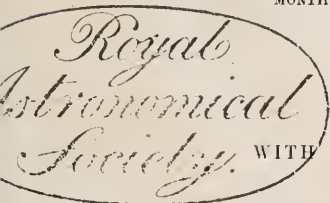 MONTH
Royal
Astronomical
Society. WITH